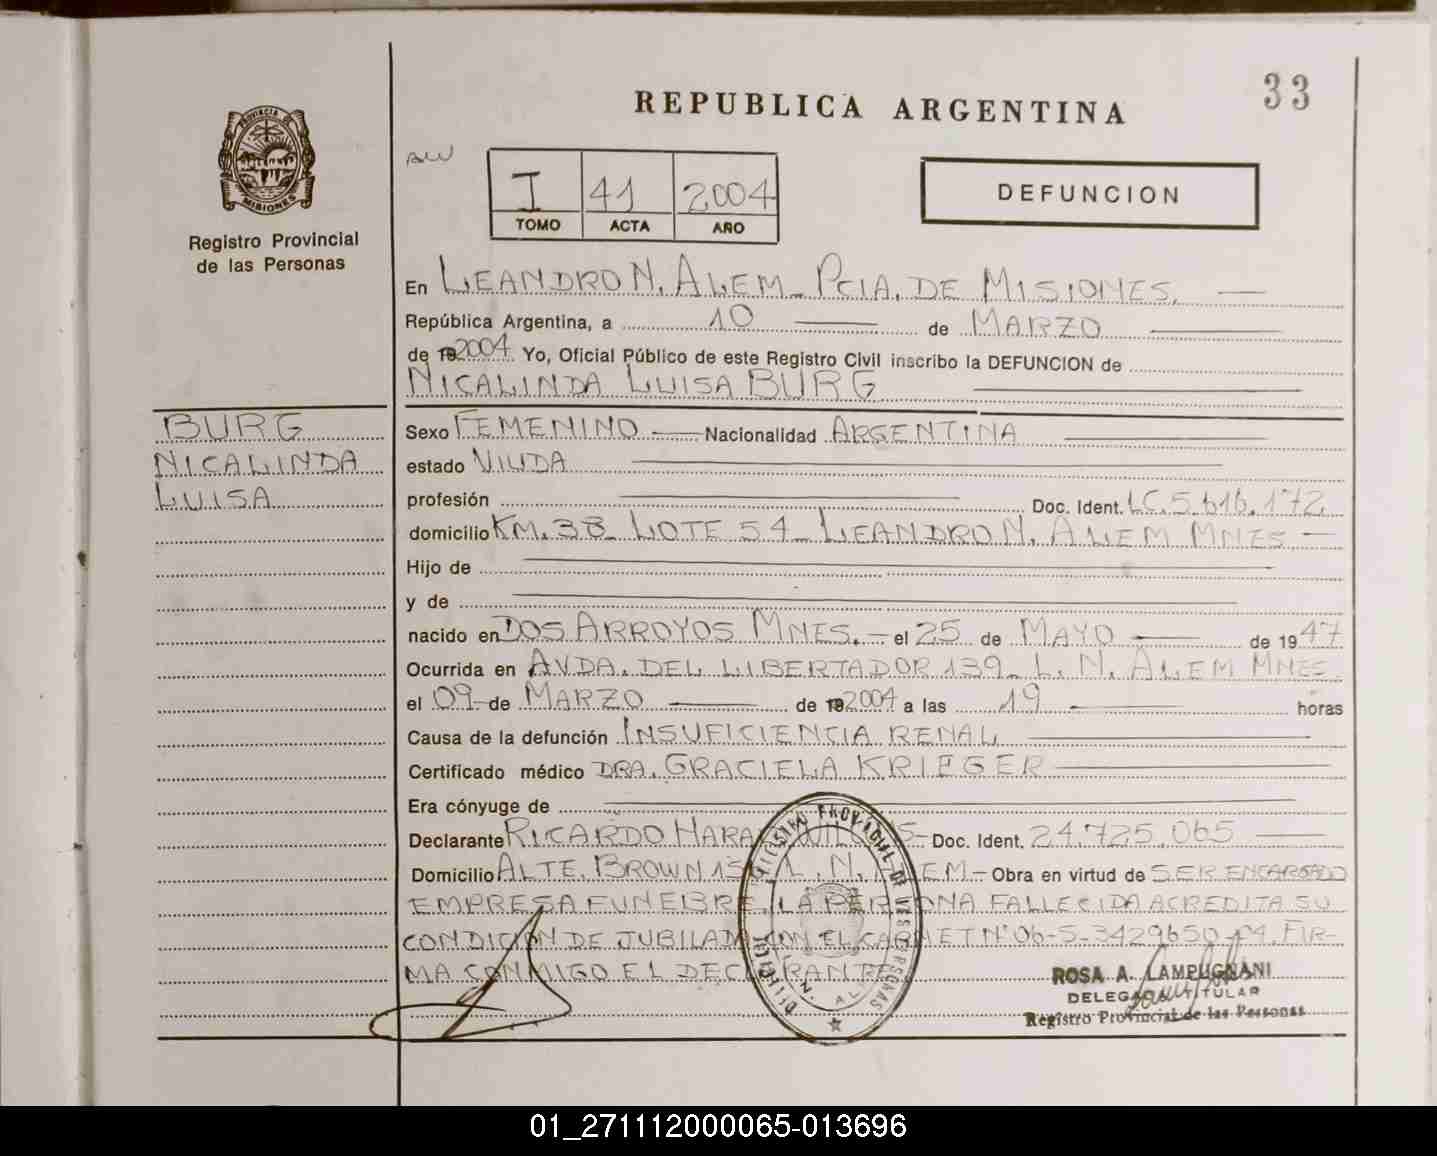 33
REPUBLICA ARGENTINA
PROVINCIA DE
MISIONES
Registro Provincial
de las Personas
I 41 2004
TOMO ACTA AÑO
DEFUNCION
En LEANDRO N. ALEM - PCIA. DE MISIONES.
República Argentina, a 10 de MARZO
de 19 2004 Yo, Oficial Público de este Registro Civil inscribo la DEFUNCION de
NICALINDA LUISA BURG
BURG
NICALINDA
LUISA
Sexo FEMENINO Nacionalidad ARGENTINA
estado VIUDA
profesión Doc. Ident. LC. 5.616.172
domicilio KM. 38 - LOTE 54 - LEANDRO N. ALEM MNES -
Hijo de
y de
nacido en DOS ARROYOS MNES. - el 25 de MAYO de 1947
Ocurrida en AVDA. DEL LIBERTADOR 139 - L. N. ALEM MNES.
el 09 de MARZO de 19 2004 a las 19 horas
Causa de la defunción INSUFICIENCIA RENAL
Certificado médico DRA. GRACIELA KRIEGER
Era cónyuge de
Declarante RICARDO Doc. Ident. 24.725.065
Domicilio ALTE. BROWN L. N. ALEM - Obra en virtud de SER ENCARGADO
EMPRESA FUNEBRE. LA PERSONA FALLECIDA ACREDITA SU
CONDICIÓN DE JUBILADA CON EL CARNET Nº 06-5-3429650-04. FIR-
MA CONMIGO EL DECLARANTE
REGISTRO PROVINCIAL DE LAS PERSONAS
ROSA A. LAMPUGNANI
DELEGADA TITULAR
Registro Provincial de las Personas
01_271112000065-013696